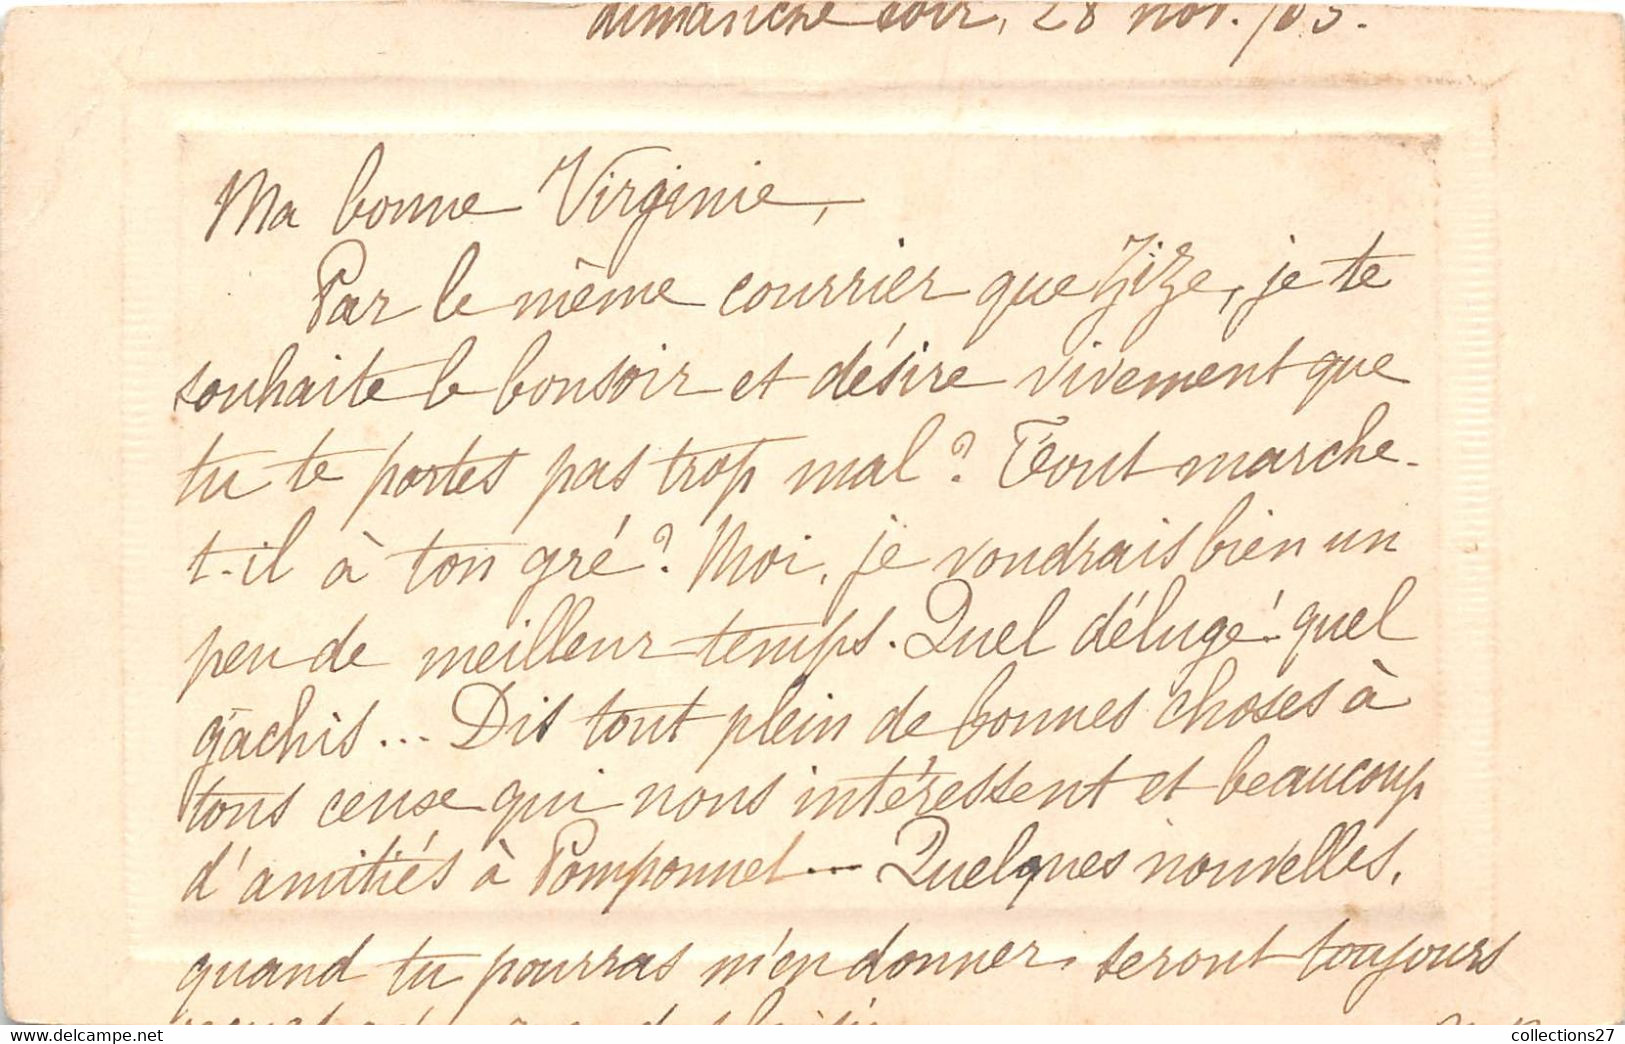 dimanche soir, 28 nov. /05.
Ma bonne Virginie,
Par le même courrier que Zize, je te
souhaite le bonsoir et désire vivement que
tu te portes pas trop mal? Tout marche-
t-il à ton gré? Moi, je voudrais bien un
peu de meilleur temps. Quel déluge! quel
gâchis... Dis tout plein de bonnes choses à
tous ceux qui nous intéressent et beaucoup
d'amitiés à Pomponnet... Quelques nouvelles,
quand tu pourras m'en donner, seront toujours
collections27